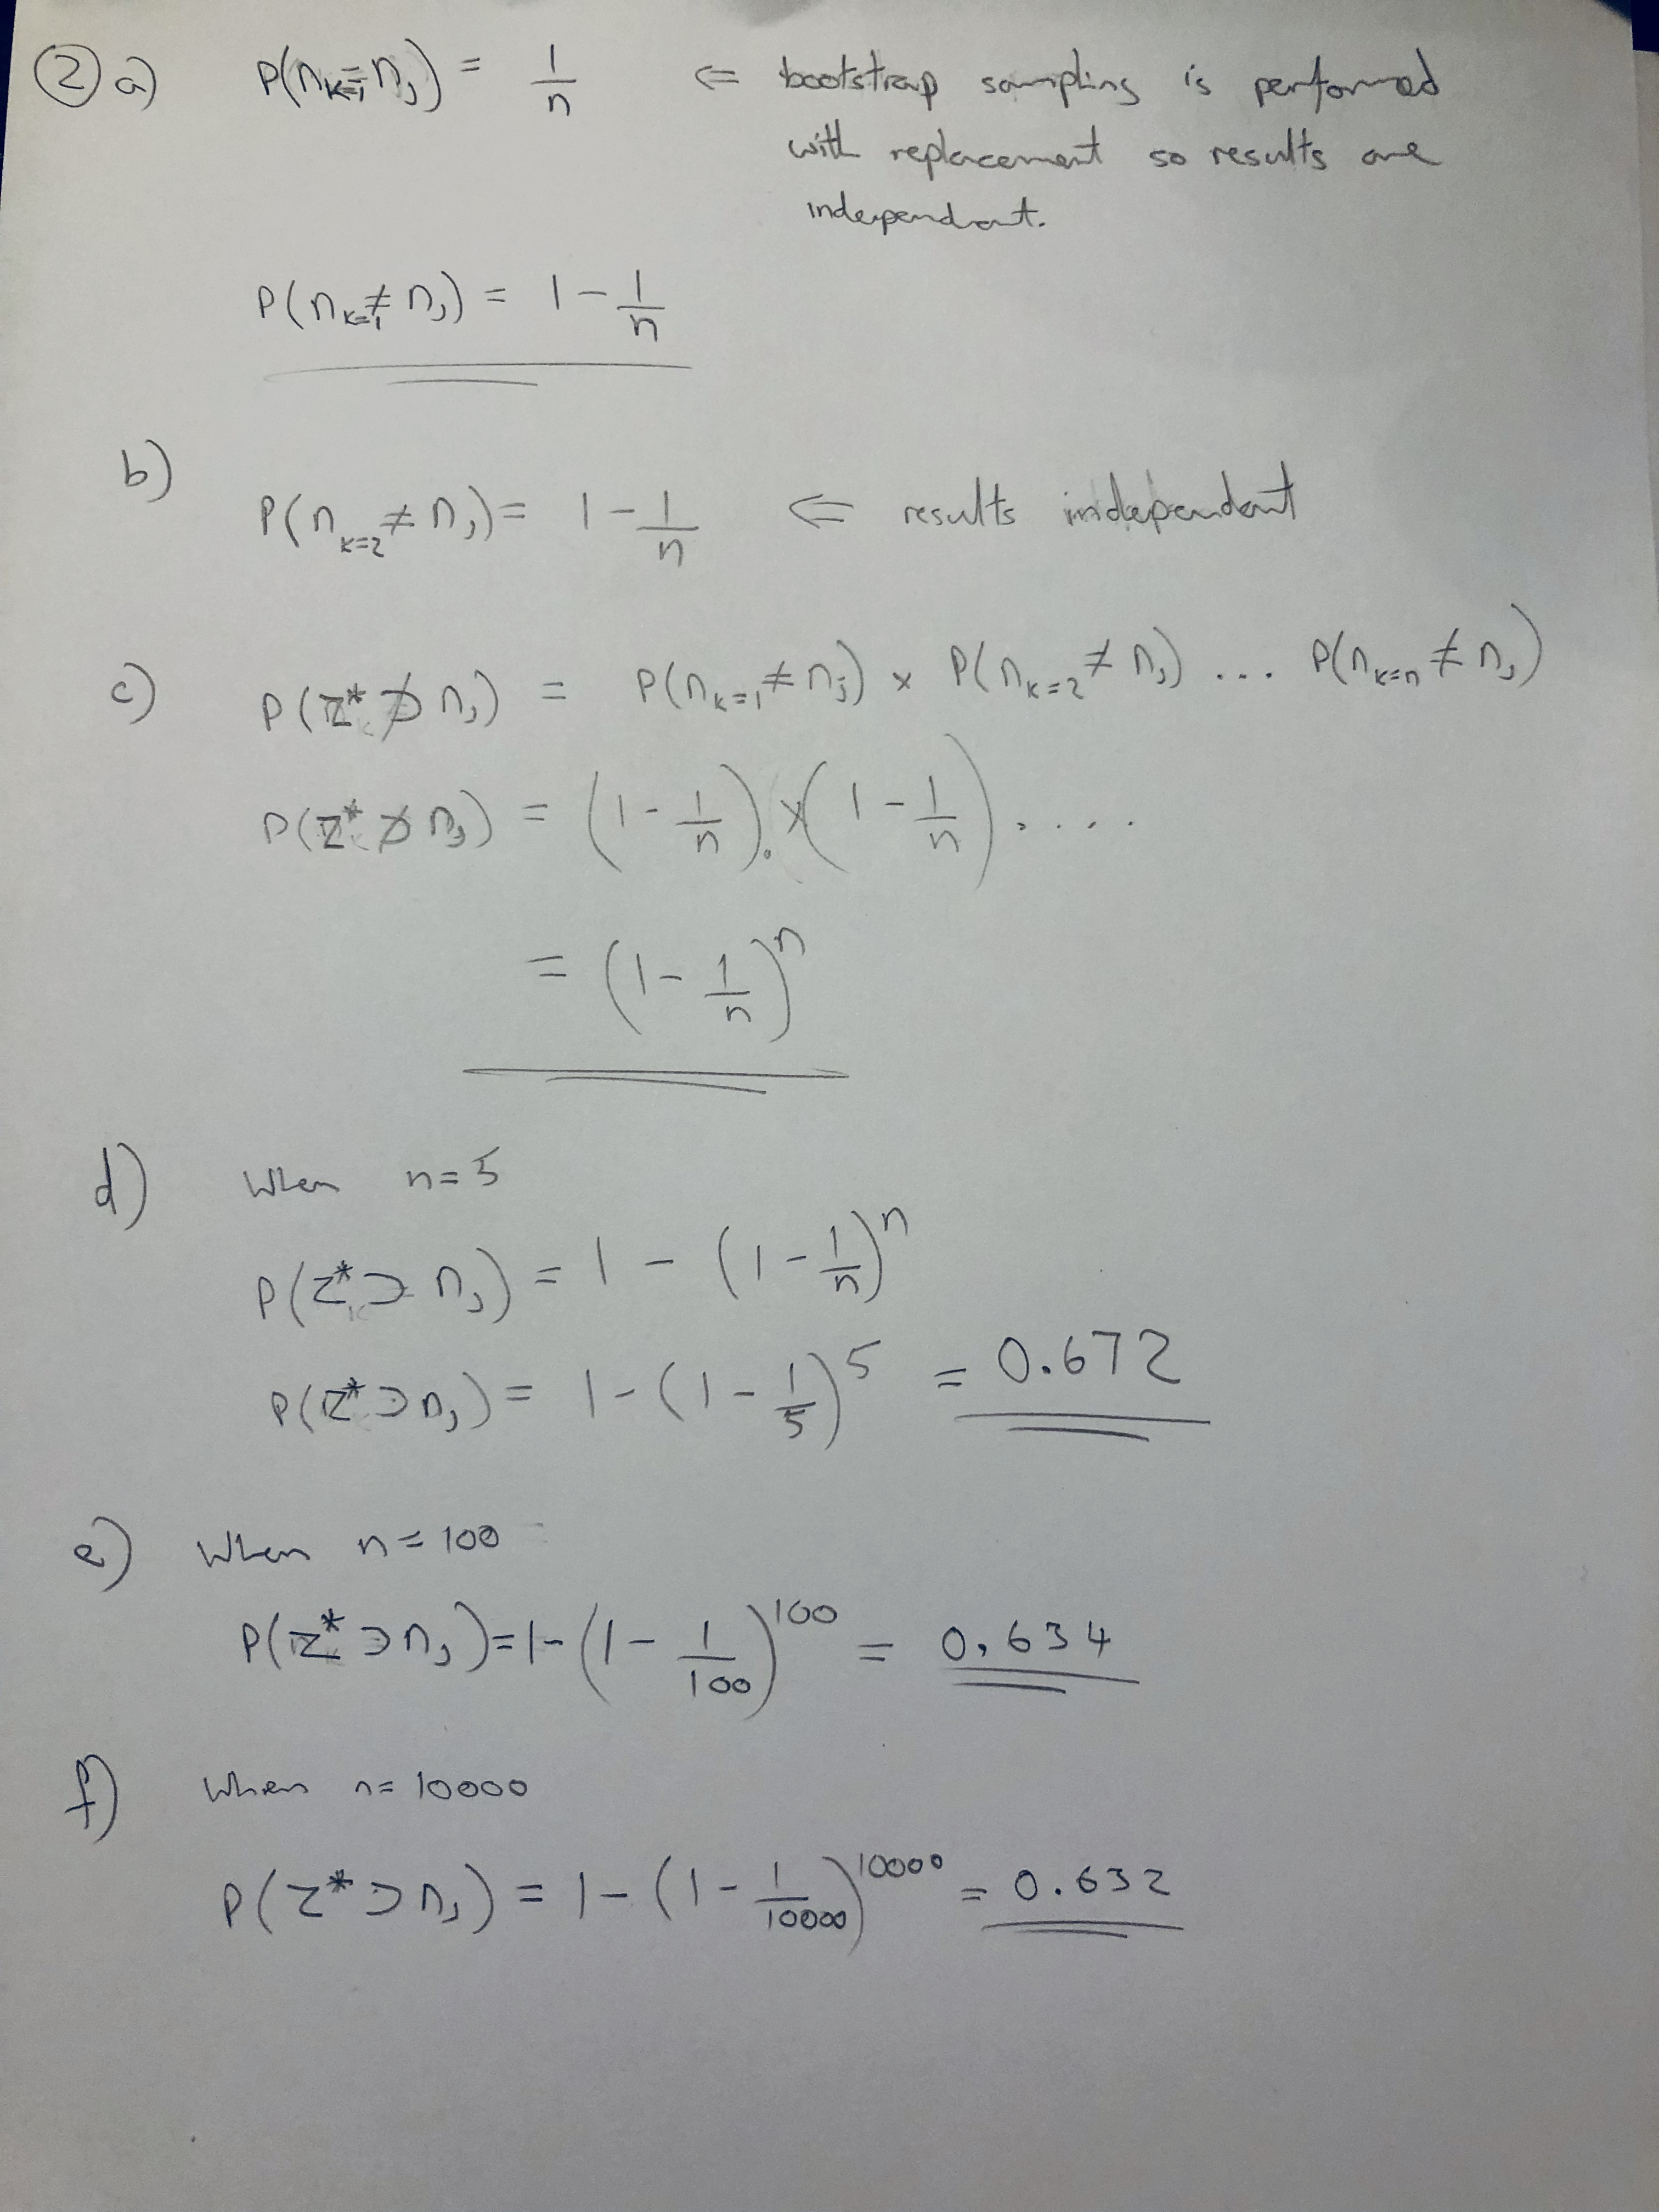 ② a) P(n_{k=1} = n_j) = 1/n ⇐ bootstrap sampling is performed
with replacement so results are
independant.
P(n_{k=1} ≠ n_j) = 1 - 1/n
b)
P(n_{k=2} ≠ n_j) = 1 - 1/n ⇐ results independant
c) P(Z* ⊅ n_j) = P(n_{k=1} ≠ n_j) × P(n_{k=2} ≠ n_j) ... P(n_{k=n} ≠ n_j)
P(Z* ⊅ n_j) = (1 - 1/n) × (1 - 1/n) ....
= (1 - 1/n)^n
d) When n = 5
P(Z* ⊃ n_j) = 1 - (1 - 1/n)^n
P(Z* ⊃ n_j) = 1 - (1 - 1/5)^5 = 0.672
e) When n = 100
P(Z* ⊃ n_j) = 1 - (1 - 1/100)^100 = 0.634
f) When n = 10000
P(Z* ⊃ n_j) = 1 - (1 - 1/10000)^10000 = 0.632